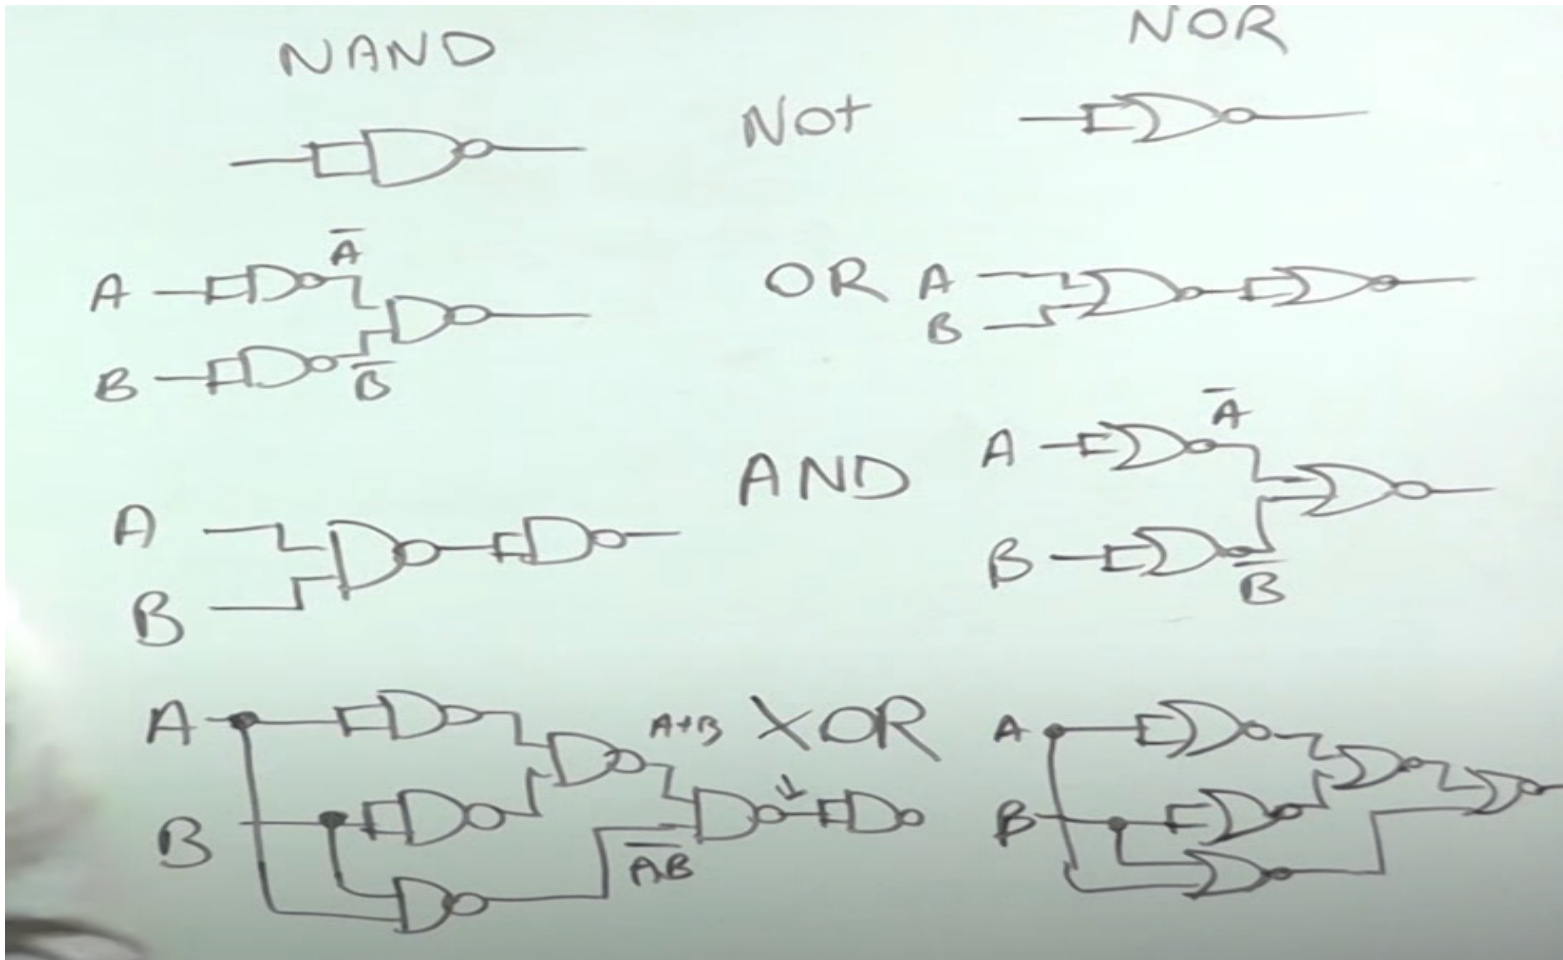 NAND
NOR
Not
A̅
A
B
B̅
OR
A
B
A
B
AND
A̅
A
B
B̅
A
B
A+B
A̅B̅
XOR
A
B